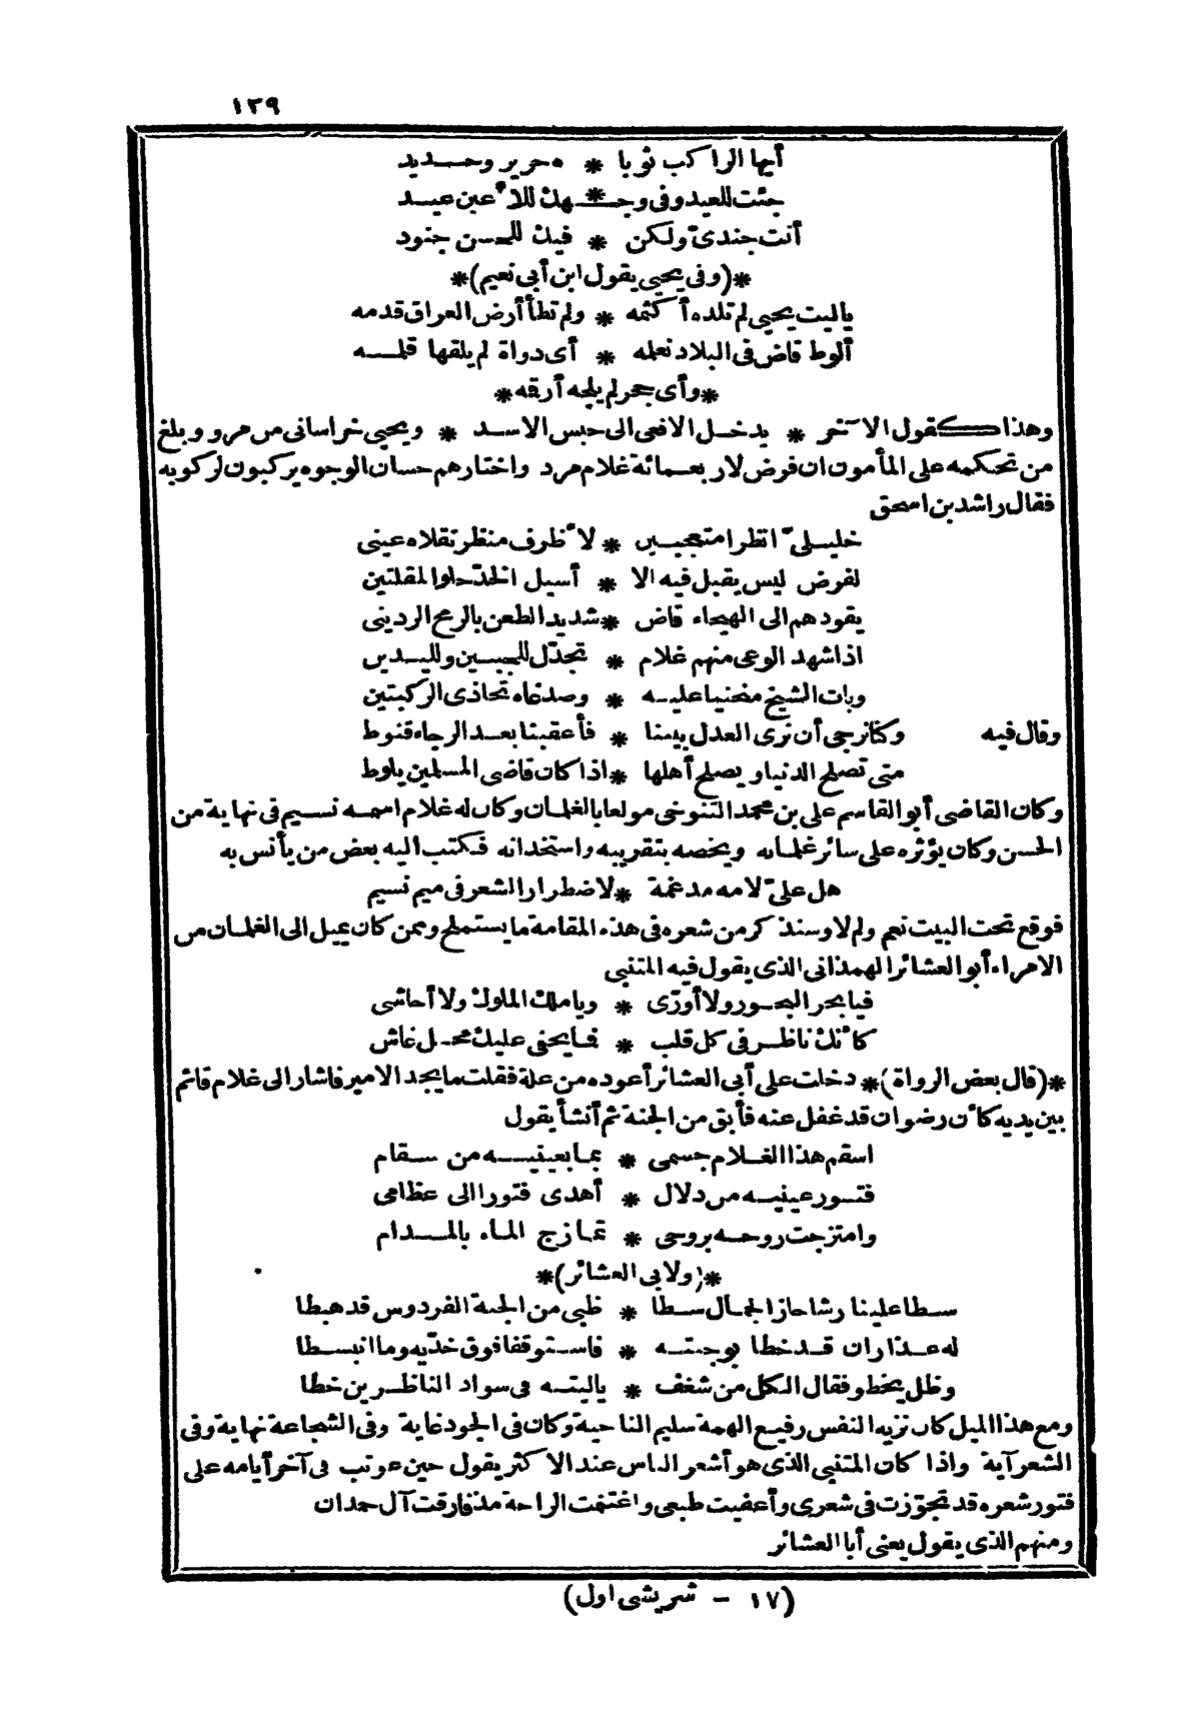 ١٢٩
أيها الراكب ثوبا * ه حرير وحديد
جئت للعيد وفى وجـ * ـهك للأعين عيد
أنت جندىّ ولكن * فيك للحسن جنود
*(وفى يحيى يقول ابن أبى نعيم)*
ياليت يحيى لم تلده أكثمه * ولم تطأ أرض العراق قدمه
ألوط قاض فى البلاد نعلمه * أى دواة لم يلقها قلمه
*وأى جحر لم يلجه أرقمه*
وهذا كقول الآخر * يدخل الافعى الى حبس الاسد * ويحيى خراسانى من مرو وبلغ
من تحكمه على المأمون ان فرض لاربعمائة غلام مرد واختارهم حسان الوجوه يركبون لركوبه
فقال راشد بن اسحق
خليلىّ انظرا متعجبين * لأظرف منظر تقلاه عينى
لفرض ليس يقبل فيه الا * أسيل الخدّ حلو المقلتين
يقودهم الى الهيجاء قاض * شديد الطعن بالرمح الردينى
اذا شهد الوعى منهم غلام * تجدّل للجبين ولليدين
وبات الشيخ منحنيا عليه * وصدغاه تحاذى الركبتين
وقال فيه وكنا نرجى أن نرى العدل بيننا * فأعقبنا بعد الرجاء قنوط
متى تصلح الدنيا ويصلح أهلها * اذا كان قاضى المسلمين يلوط
وكان القاضى أبو القاسم على بن محمد التنوخى مولعا بالغلمان وكان له غلام اسمه نسيم فى نهاية من
الحسن وكان يؤثره على سائر غلمانه ويخصه بتقريبه واستخدانه فكتب اليه بعض من يأنس به
هل علىّ لامه مدغمة * لاضطرار الشعر فى ميم نسيم
فوقع تحت البيت نعم ولم لا وسنذكر من شعره فى هذه المقامة ما يستملح وممن كان يميل الى الغلمان من
الامراء أبو العشائر الهمذانى الذى يقول فيه المتنبى
فيا بحر البحور ولا أورّى * ويا ملك الملوك ولا أحاشى
كأنك ناظر فى كل قلب * فما يخفى عليك محل غاش
*(قال بعض الرواة)* دخلت على أبى العشائر أعوده من علة فقلت ما يجد الامير فاشار الى غلام قائم
بين يديه كأن رضوان قد غفل عنه فأبق من الجنة ثم أنشأ يقول
اسقم هذا الغلام جسمى * بما بعينيه من سقام
فتور عينيه من دلال * أهدى فتورا الى عظامى
وامتزجت روحه بروحى * تمازج الماء بالمدام
*(ولابى العشائر)*
سطا علينا رشا حاز الجمال سطا * ظبى من الجنة الفردوس قد هبطا
له عذاران قد خطا بوجنته * فاستوقفا فوق خدّيه وما انبسطا
وظل يخطو فقال الكل من شغف * ياليته فى سواد الناظرين خطا
ومع هذا الميل كان نزيه النفس رفيع الهمة سليم الناحية وكان فى الجود غاية وفى الشجاعة نهاية وفى
الشعر آية واذا كان المتنبى الذى هو أشعر الناس عند الاكثر يقول حين عوتب فى آخر أيامه على
فتور شعره قد تجوّزت فى شعرى وأعفيت طبعى واغتنمت الراحة مذ فارقت آل حمدان
ومنهم الذى يقول يعنى أبا العشائر
(١٧ - شريشى اول)